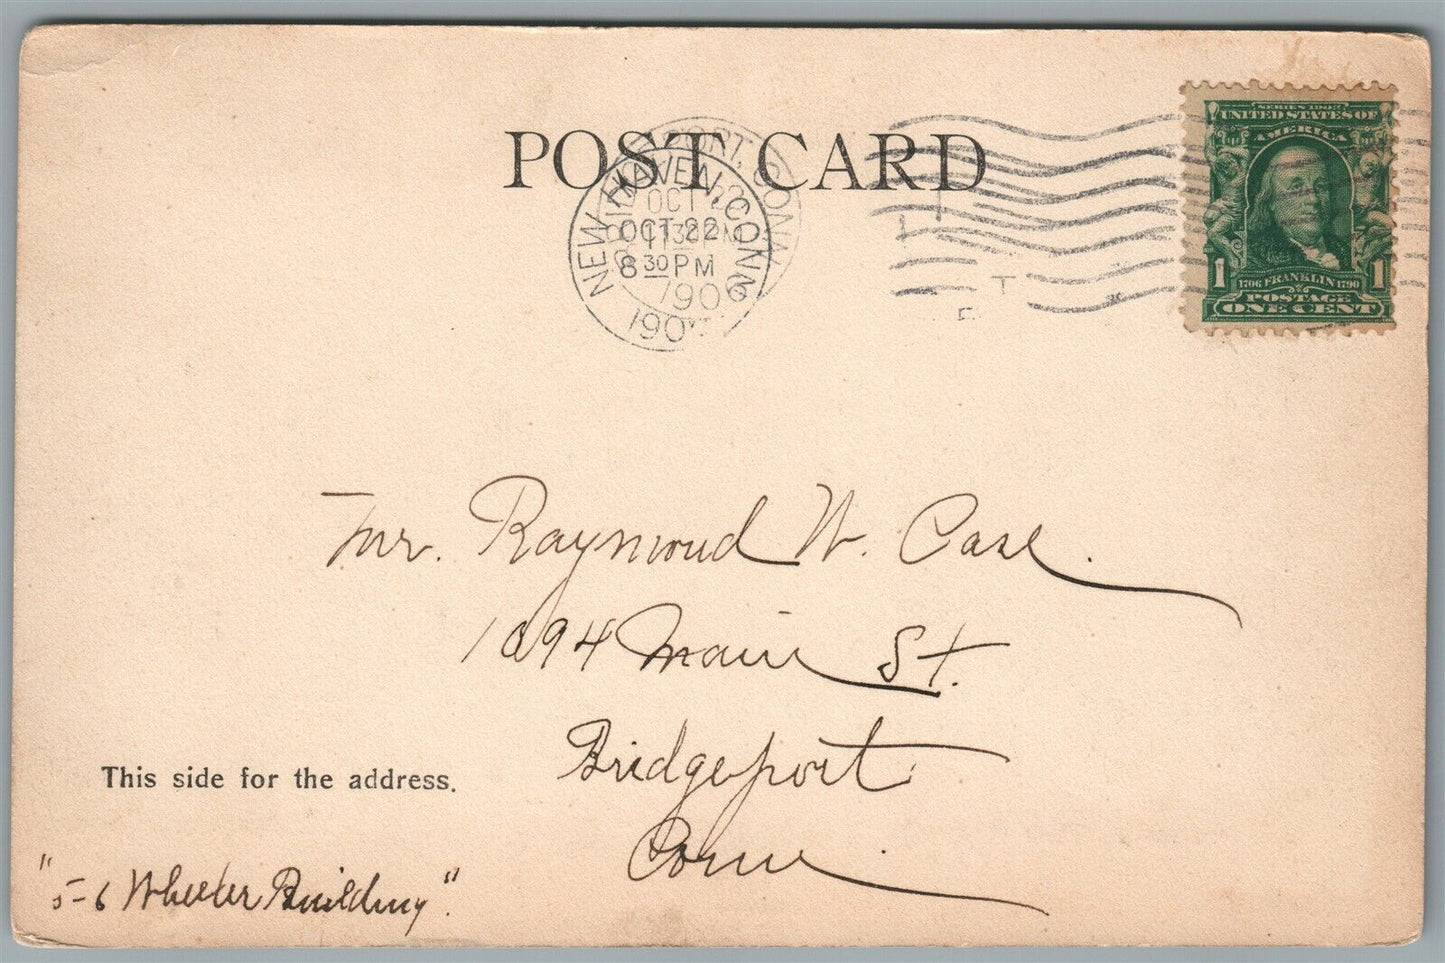 POST CARD
NEW HAVEN, CONN.
OCT 22
8 30 PM
190
BRIDGEPORT, CONN.
OCT 22
11 30 PM
1906
SERIES 1902
UNITED STATES OF
AMERICA
1 1
1706 FRANKLIN 1790
POSTAGE
ONE CENT
Mr. Raymond W. Case.
1094 Main St.
Bridgeport
Conn.
This side for the address.
"5-6 Wheeler Building".